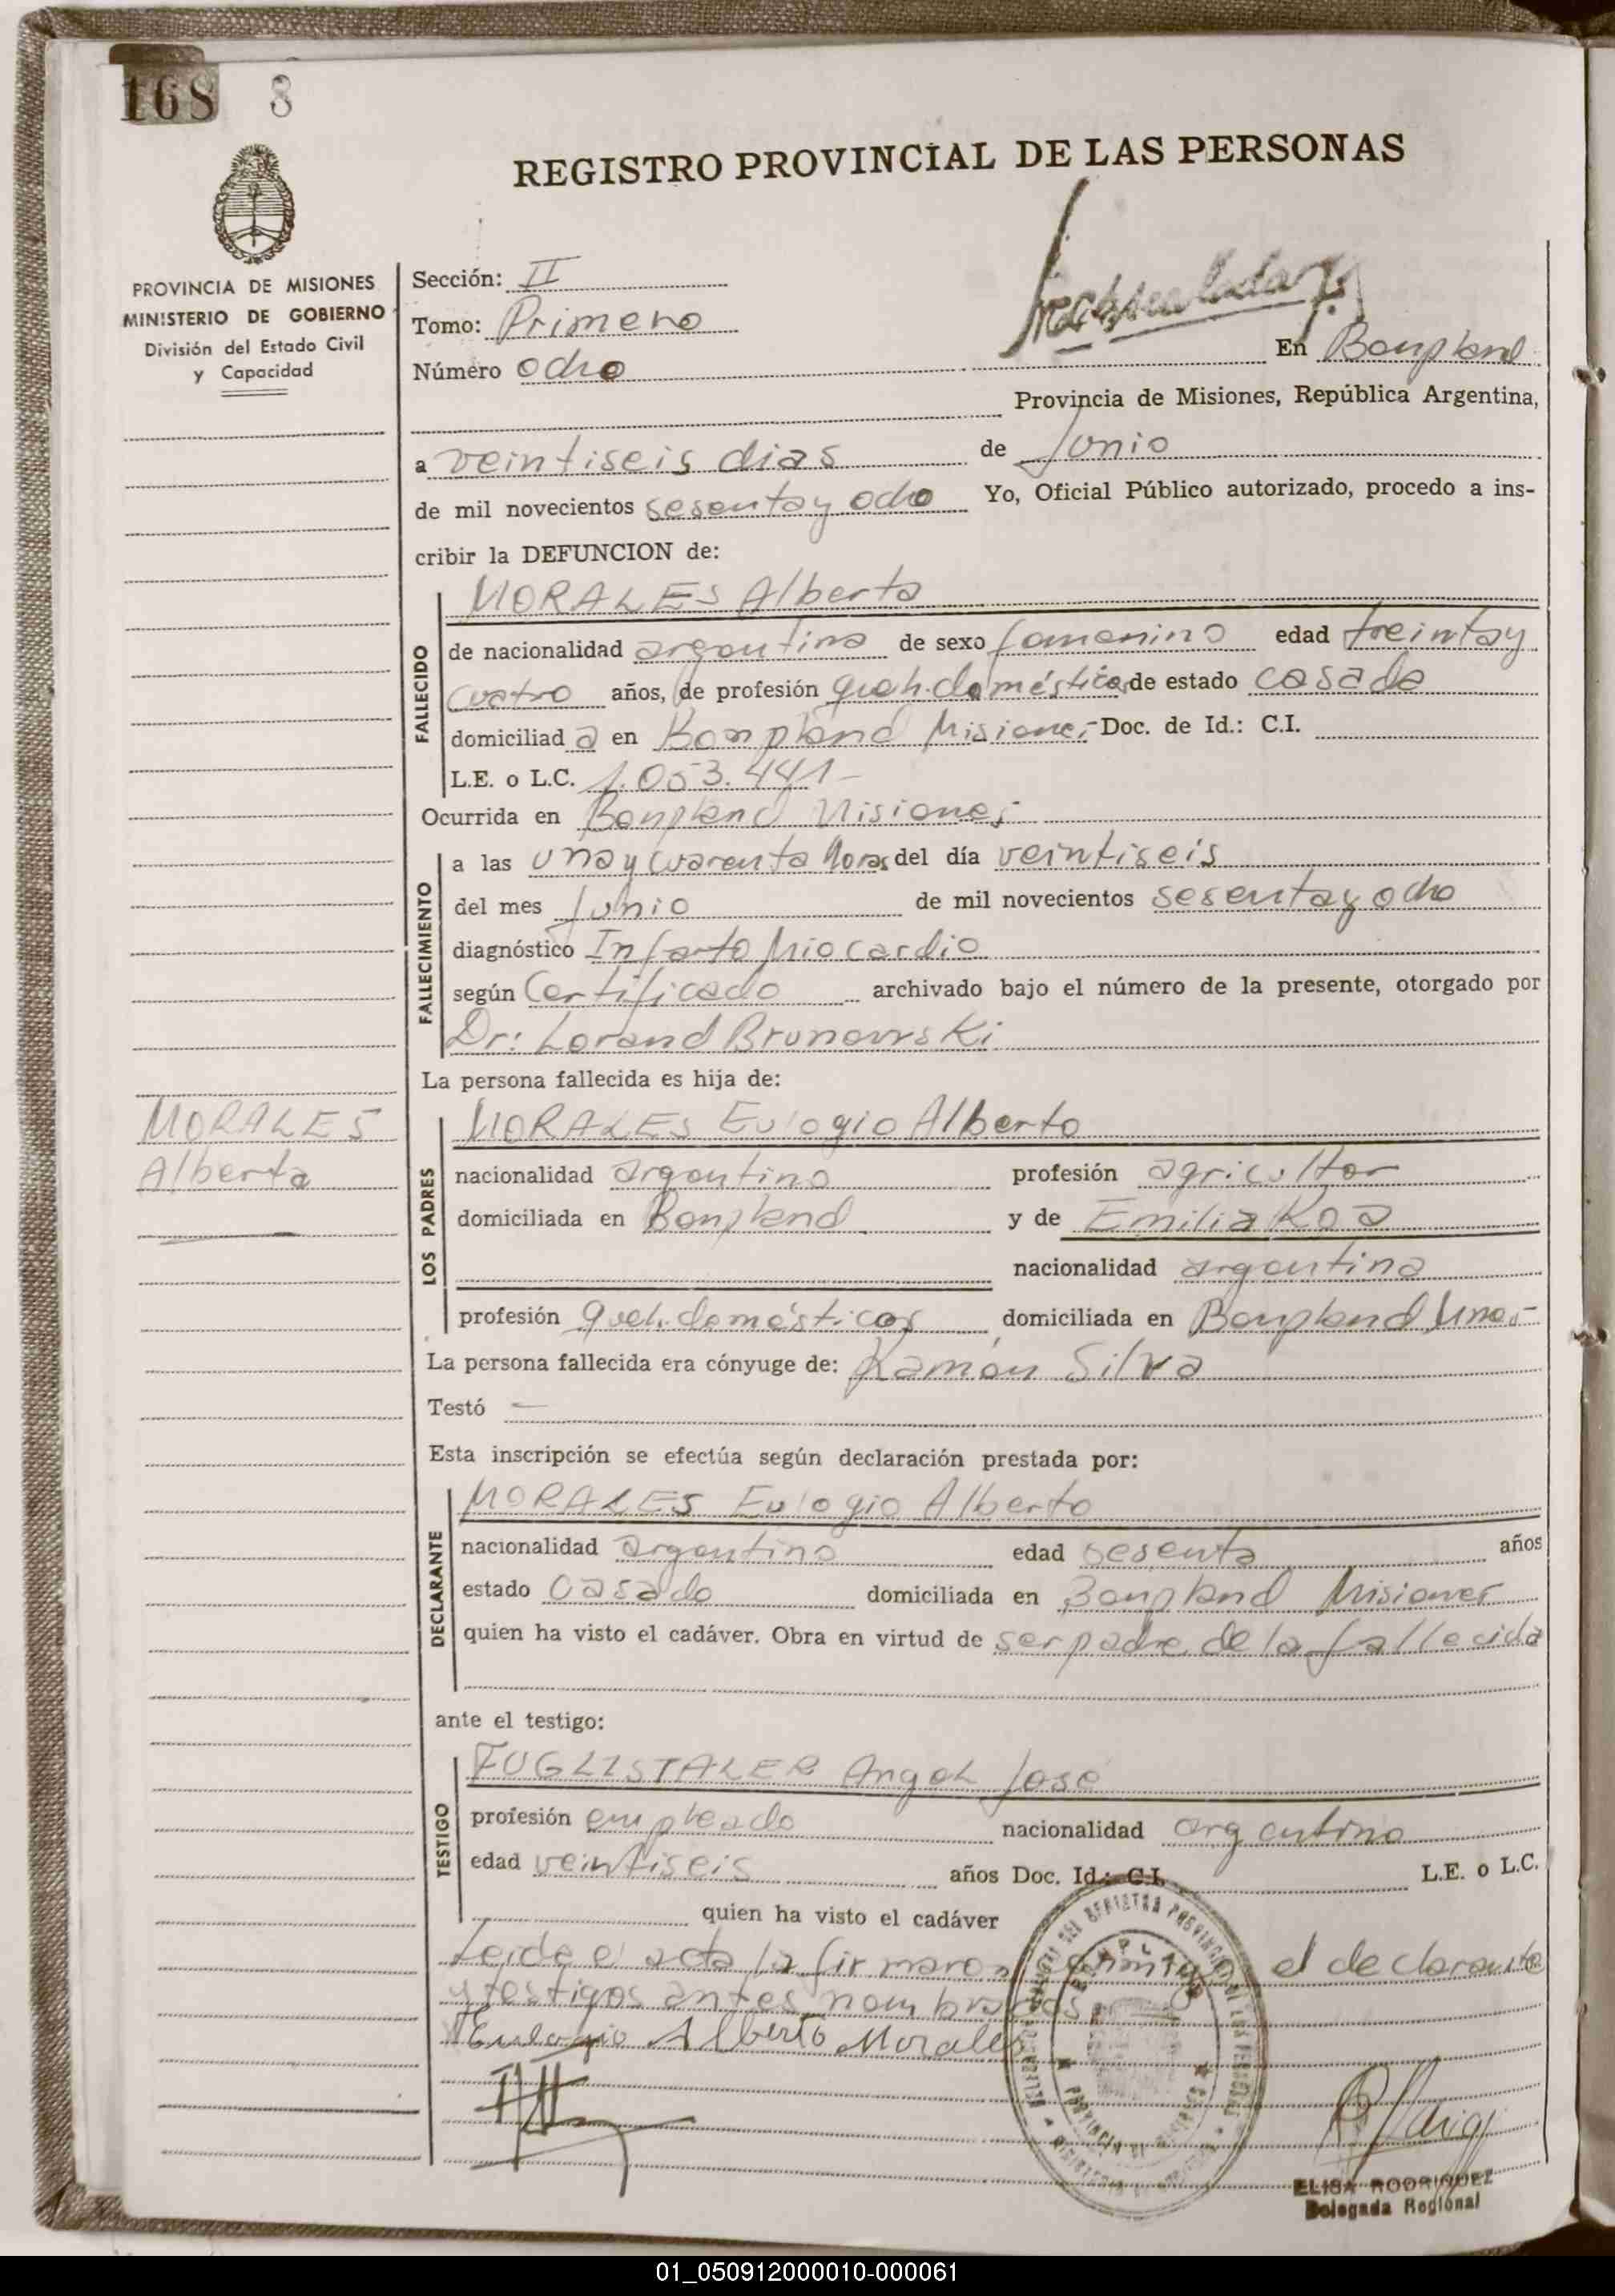 168 8
REGISTRO PROVINCIAL DE LAS PERSONAS
PROVINCIA DE MISIONES
MINISTERIO DE GOBIERNO
División del Estado Civil
y Capacidad
Sección: II
Tomo: Primero
Número ocho
En Bonpland
Provincia de Misiones, República Argentina,
a veintiseis dias de Junio
de mil novecientos sesenta y ocho Yo, Oficial Público autorizado, procedo a ins-
cribir la DEFUNCION de:
FALLECIDO
MORALES Alberta
de nacionalidad argentina de sexo femenino edad treinta y
cuatro años, de profesión queh. domésticos de estado casada
domiciliada en Bonpland Misiones Doc. de Id.: C.I.
L.E. o L.C. 1.053.441-
Ocurrida en Bonpland Misiones
FALLECIMIENTO
a las una y cuarenta horas del día veintiseis
del mes Junio de mil novecientos sesenta y ocho
diagnóstico Infarto Miocardio
según Certificado archivado bajo el número de la presente, otorgado por
Dr: Lorand Brunowski
La persona fallecida es hija de:
MORALES
Alberta
LOS PADRES
MORALES Eulogio Alberto
nacionalidad argentino profesión agricultor
domiciliada en Bonpland y de Emilia Koa
nacionalidad argentina
profesión queh. domésticos domiciliada en Bonpland Mnes.-
La persona fallecida era cónyuge de: Ramón Silva
Testó —
Esta inscripción se efectúa según declaración prestada por:
DECLARANTE
MORALES Eulogio Alberto
nacionalidad argentino edad sesenta años
estado casado domiciliada en Bonpland Misiones
quien ha visto el cadáver. Obra en virtud de ser padre de la fallecida
ante el testigo:
TESTIGO
FUGLISTALER Angel José
profesión empleado nacionalidad argentino
edad veintiseis años Doc. Id.: C.I. L.E. o L.C.
quien ha visto el cadáver
Leida el acta la firmaron conmigo el declarante
y testigos antes nombrados
Eulogio Alberto Morales
BONPLAND
ELISA RODRIGUEZ
Delegada Regional
01_050912000010-000061